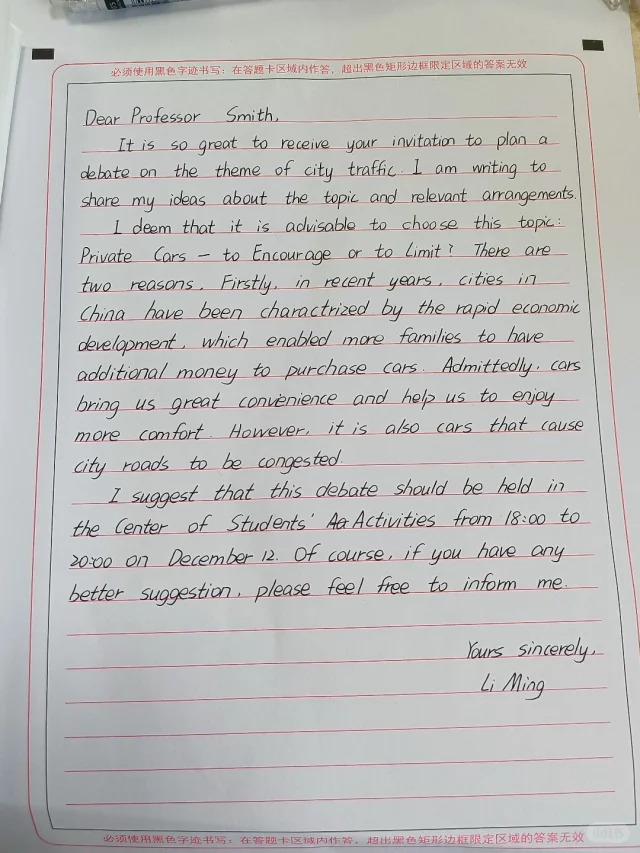 必须使用黑色字迹书写：在答题卡区域内作答，超出黑色矩形边框限定区域的答案无效
Dear Professor Smith,
It is so great to receive your invitation to plan a
debate on the theme of city traffic. I am writing to
share my ideas about the topic and relevant arrangements.
I deem that it is advisable to choose this topic:
Private Cars — to Encourage or to Limit? There are
two reasons. Firstly, in recent years, cities in
China have been charactrized by the rapid economic
development, which enabled more families to have
additional money to purchase cars. Admittedly, cars
bring us great convenience and help us to enjoy
more comfort. However, it is also cars that cause
city roads to be congested.
I suggest that this debate should be held in
the Center of Students' Activities from 18:00 to
20:00 on December 12. Of course, if you have any
better suggestion, please feel free to inform me.
Yours sincerely,
Li Ming
必须使用黑色字迹书写：在答题卡区域内作答，超出黑色矩形边框限定区域的答案无效